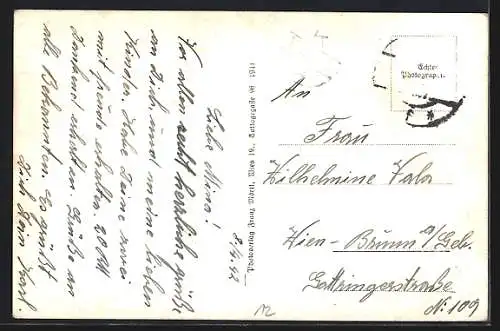 8.4.42
Liebe Mina!
Vor allen recht herzliche Grüße
an Dich, und meine lieben
Kinder. Habe Deine zwei
mit Freude erhalten. 20 RM
dankend erhalten. Grüße an
alle Bekannten. Es grüßt
Dich Dein Karl.
Photoverlag Franz Mörtl, Wien 19.,
1941
Echte
Photographie
An
Frau
Wilhelmine Vala
Wien - Brunn a/Geb.
Gattringerstraße
N. 109
12